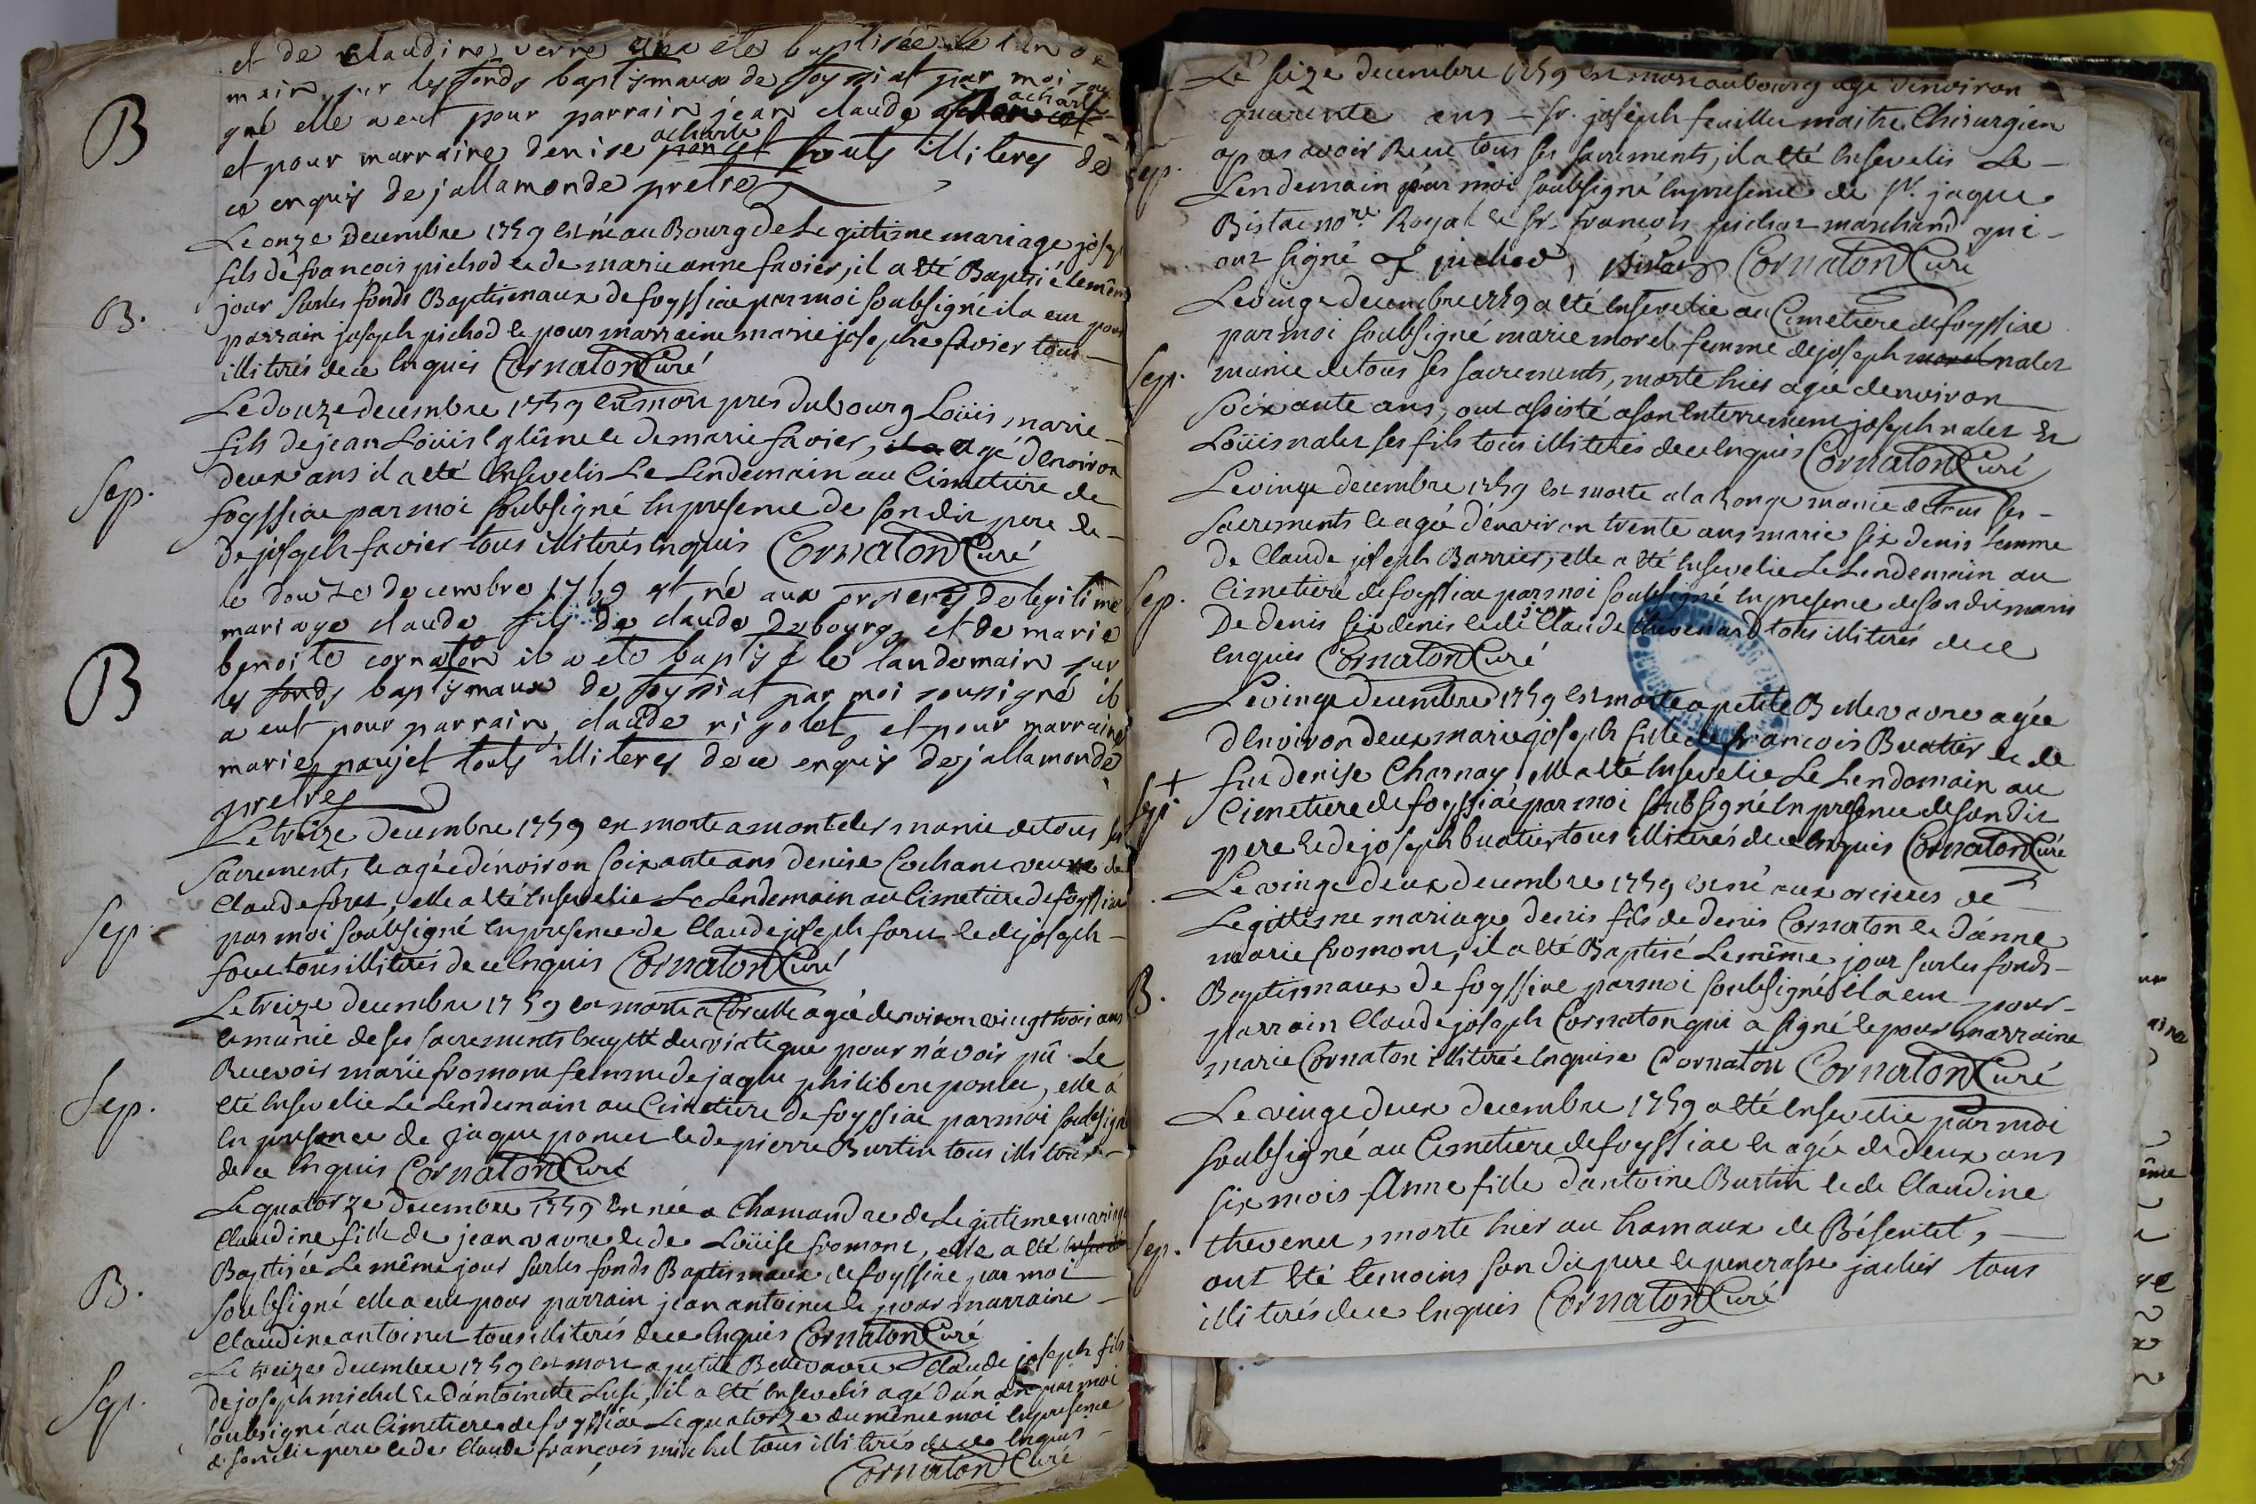 et de claudine verne elle a été baptisée le
main sur les fonds baptismaux de foyssiat par moi sousi
gné elle a eut pour parrain jean claude acharle
B
et pour marraine denise acharle touts illiterés de
ce enquis dejallamonde pretre
Le onze decembre 1759 est né au Bourg de Legittime mariage
fils de francois pichod et de marie anne favier, il a été Baptisé le même
B.
jour sur les fonds Baptismaux de foyssiac par moi soubsigné il a eut pour
parrain joseph pichod et pour marraine marie josephe favier tous
illiterés de ce enquis Cornaton Curé
Le douze decembre 1759 est mort pres du bourg Loüis marie
fils de jean Loüis et de marie favier, agé d'environ
Sep.
deux ans il a été ensevelis Le Lendemain au Cimetiere de
foyssiac par moi soubsigné en presence de son dit pere et
de joseph favier tous illiterés enquis Cornaton Curé
le douze decembre 1759 est né aux orcieres de legitime
mariage claude fils de claude Dubourg et de marie
B
benoite cornaton il a eté baptisé le landemain sur
les fonds baptismaux de foyssiat par moi sousigné il
a eut pour parrain claude rigolet et pour marraine
marie paujet touts illiterés de ce enquis dejallamonde
pretre
Le treize decembre 1759 est morte a montelet munie de tous ses
sacrements et agée d'environ soixante ans denise Cochane veuve de
Claude foret, elle a été ensevelie Le Lendemain au Cimetiere de foyssiac
Sep.
par moi soubsigné en presence de Claude joseph foret et de joseph
foret tous illiterés de ce enquis Cornaton Curé
Le treize decembre 1759 est morte a Corcelle agée d'environ vingt trois ans
et munie de ses sacrements excepté du viatique pour n'avoir pû Le
Recevoir marie fromont femme de jaque philibert poncet, elle a
Sep.
été ensevelie Le Lendemain au Cimetiere de foyssiac par moi soubsigné
en presence de jaque poncet et de pierre Burtin tous illiterés
de ce enquis Cornaton Curé
Le quatorze decembre 1759 est née a Chamandre de Legitime mariage
Claudine fille de jean vavre et de Loüise fromont, elle a été
Baptisée Le même jour sur les fonds Baptismaux de foyssiac par moi
B.
soubsigné elle a eut pour parrain jean antoinet et pour marraine
Claudine antoinet tous illiterés de ce enquis Cornaton Curé
Le treize decembre 1759 est mort a petite Bellevavre Claude joseph fils
de joseph michel et d'antoinette Lusi, il a été ensevelis agé d'un an par moi
Sep.
soubsigné au Cimetiere de foyssiac Le quatorze du même moi en presence
de son dit pere et de Claude françois michel tous illiterés de ce enquis
Cornaton Curé
Le seize decembre 1759 est mort au bourg agé d'environ
quarente ans Sr. joseph feuillet maitre Chirurgien
Sep.
apres avoir Receu tous ses sacrements, il a été ensevelis Le
Lendemain par moi soubsigné en presence de Sr. jaque
Bistac nore. Royal et Sr. francois pichot marchand qui
ont signé f pichod, Cornaton Curé
Le vingt decembre 1759 a été ensevelie au Cimetiere de foyssiac
par moi soubsigné marie morel femme de joseph morel nalet
Sep.
munie de tous ses sacrements, morte hier agée d'environ
soixante ans, ont assisté a son enterrement joseph nalet et
Loüis nalet ses fils tous illiterés de ce enquis Cornaton Curé
Le vingt decembre 1759 est morte a la Ronge munie de tous ses
sacrements et agée d'environ trente ans marie six denis femme
de Claude joseph Barrier, elle a été ensevelie Le Lendemain au
Sep.
Cimetiere de foyssiac par moi soubsigné en presence de son dit mari
De denis six denis et de jean Claude thevenard tous illiterés de ce
enquis Cornaton Curé
Le vingt decembre 1759 est morte a petite Bellevavre agée
d'environ deux marie joseph fille de francois Buatier et de
Sep.
fut denise Charnay elle a été ensevelie Le Lendemain au
Cimetiere de foyssiac par moi soubsigné en presence de son dit
pere et de joseph buatier tous illiterés de ce enquis Cornaton Curé
Le vingt deux decembre 1759 est né aux orcieres de
Legittime mariage denis fils de denis Cornaton et d'anne
marie fromont, il a été Baptisé Le même jour sur les fonds
B.
Baptismaux de foyssiac par moi soubsigné il a eut pour
parrain Claude joseph Cornaton qui a signé et pour marraine
marie Cornaton illiterée enquise Cornaton Cornaton Curé
Le vingt deux decembre 1759 a été ensevelie par moi
soubsigné au Cimetiere de foyssiac et agée de deux ans
six mois Anne fille d'antoine Burtin et de Claudine
Sep.
thevenet, morte hier au hamaux de Bésentet,
ont été temoins son dit pere et pancrasse jachet tous
illiterés de ce enquis Cornaton Curé